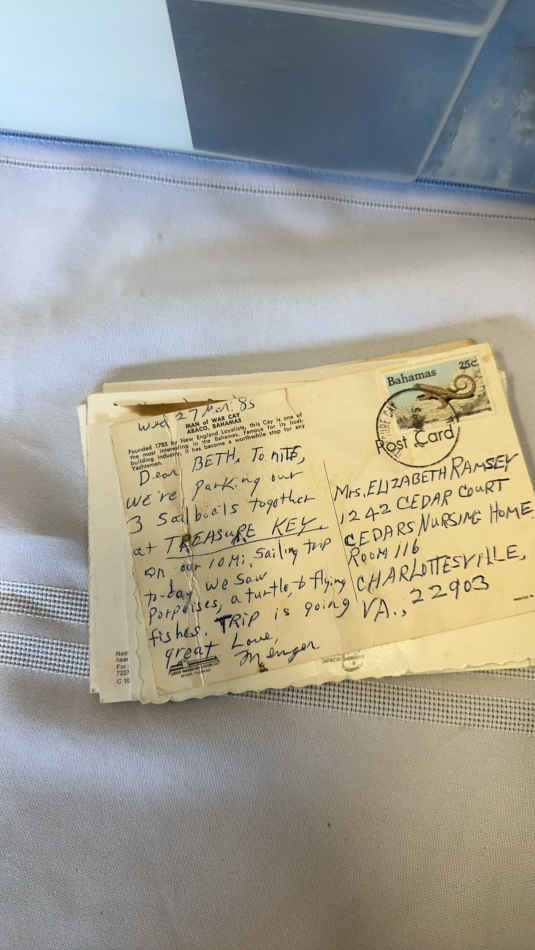 Wed 27 Mar '85
MAN of WAR CAY
ABACO, BAHAMAS
Founded 1783 by New England Loyalists, this Cay is one of
the most interesting in the Bahamas. Famous for its boat-
building industry, it has become a worthwhile stop for any
Yachtsmen.
Dear BETH, To nite,
we're parking our
3 sailboats together
at TREASURE KEY.
On our 10 Mi. Sailing trip
to-day we saw
Porpoises, a turtle, & flying
fishes. TRIP is going
great Love,
Bahamas 25c
Post Card
Mrs. ELIZABETH RAMSEY
1242 CEDAR COURT
CEDARS NURSING HOME
ROOM 116
CHARLOTTESVILLE,
VA., 22903